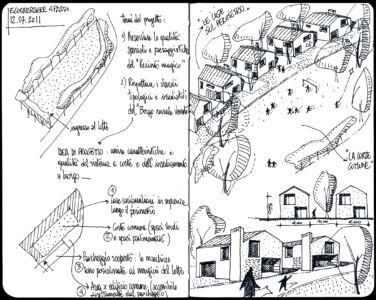 12.07.2011
Temi del progetto:
1) Preservare la qualità
spaziale e paesaggistica
del "Recinto magico"
2) Rispettare i vincoli
tipologici e insediativi
del "Borgo rurale veneto"
ingresso al lotto
IDEA DI PROGETTO: unire caratteristiche e
qualità del sistema a corte e dell'insediamento
a borgo
1
case unifamiliari in sequenza
lungo il perimetro
Corte comune (spazi verdi
2 e spazi pavimentati)
Parcheggio scoperto: le macchine
3 sono posizionate ai margini del lotto
4 edificio comune, accessibile
"LE CASE
SUL PERIMETRO"
"LA CORTE
COMUNE"